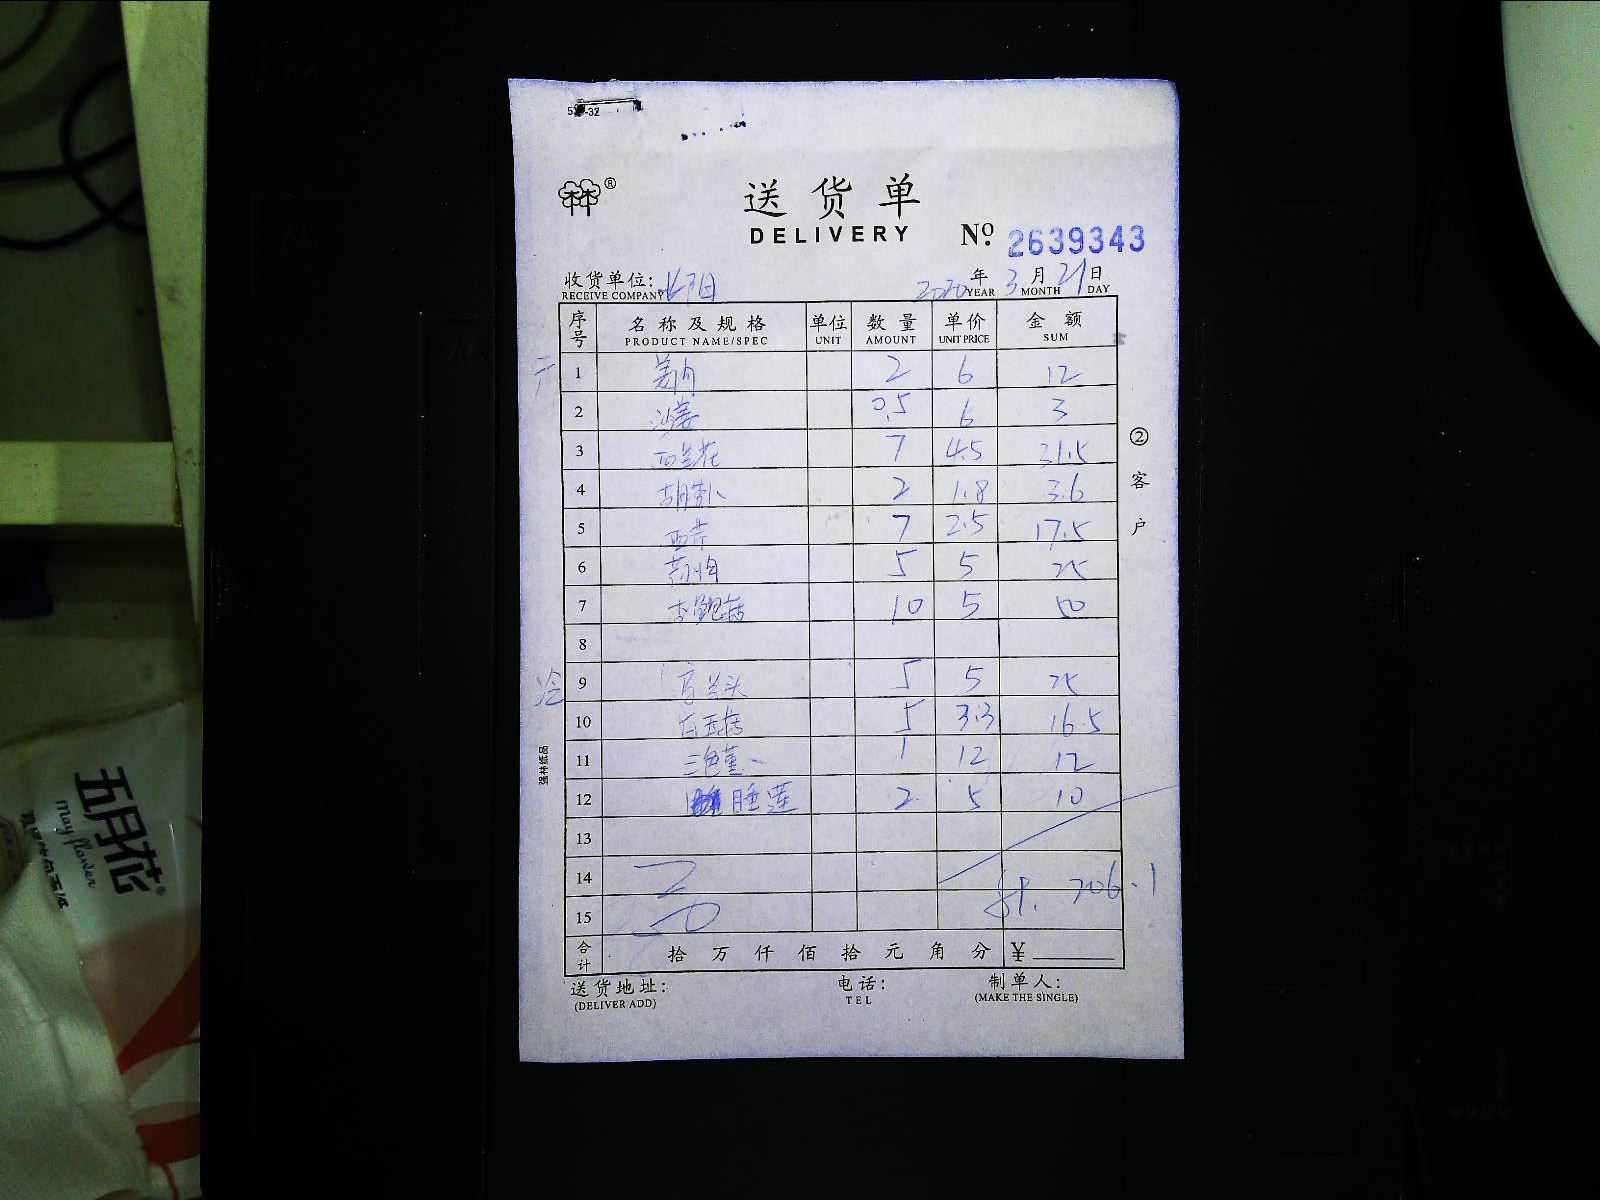 送货单
DELIVERY
№ 2639343
收货单位:
2020年 3月 21日
RECEIVE COMPANY YEAR MONTH DAY
序号 名称及规格 单位 数量 单价 金额
PRODUCT NAME/SPEC UNIT AMOUNT UNIT PRICE SUM
1 姜肉 2 6 12
2 沙姜 0.5 6 3
3 西兰花 7 4.5 31.5
4 胡萝卜 2 1.8 3.6
5 西芹 7 2.5 17.5
6 5 5 25
7 杏鲍菇 10 5 50
8
冷 9 马兰头 5 5 25
10 白玉菇 5 3.3 16.5
11 三色堇 1 12 12
12 睡莲 2 5 10
13
14
计. 206.1
15
合计 拾 万 仟 佰 拾 元 角 分 ¥
送货地址: 电话: 制单人:
(DELIVER ADD) TEL (MAKE THE SINGLE)
②客户
强林纸品
五月花
May flower